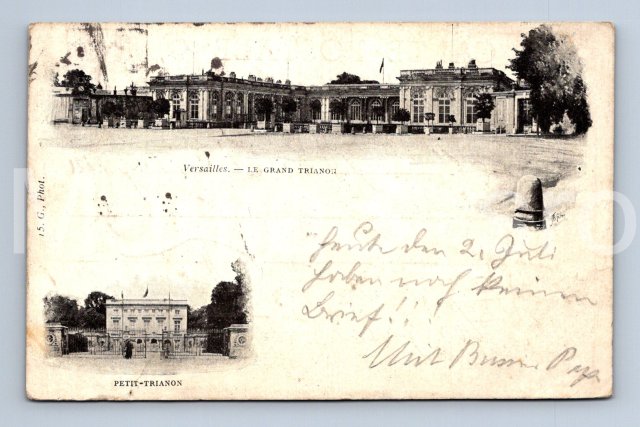 Versailles. — LE GRAND TRIANON
15. G., Phot.
heute den 2. Juli
haben noch keinen
Brief!!
Mit Papa
PETIT-TRIANON